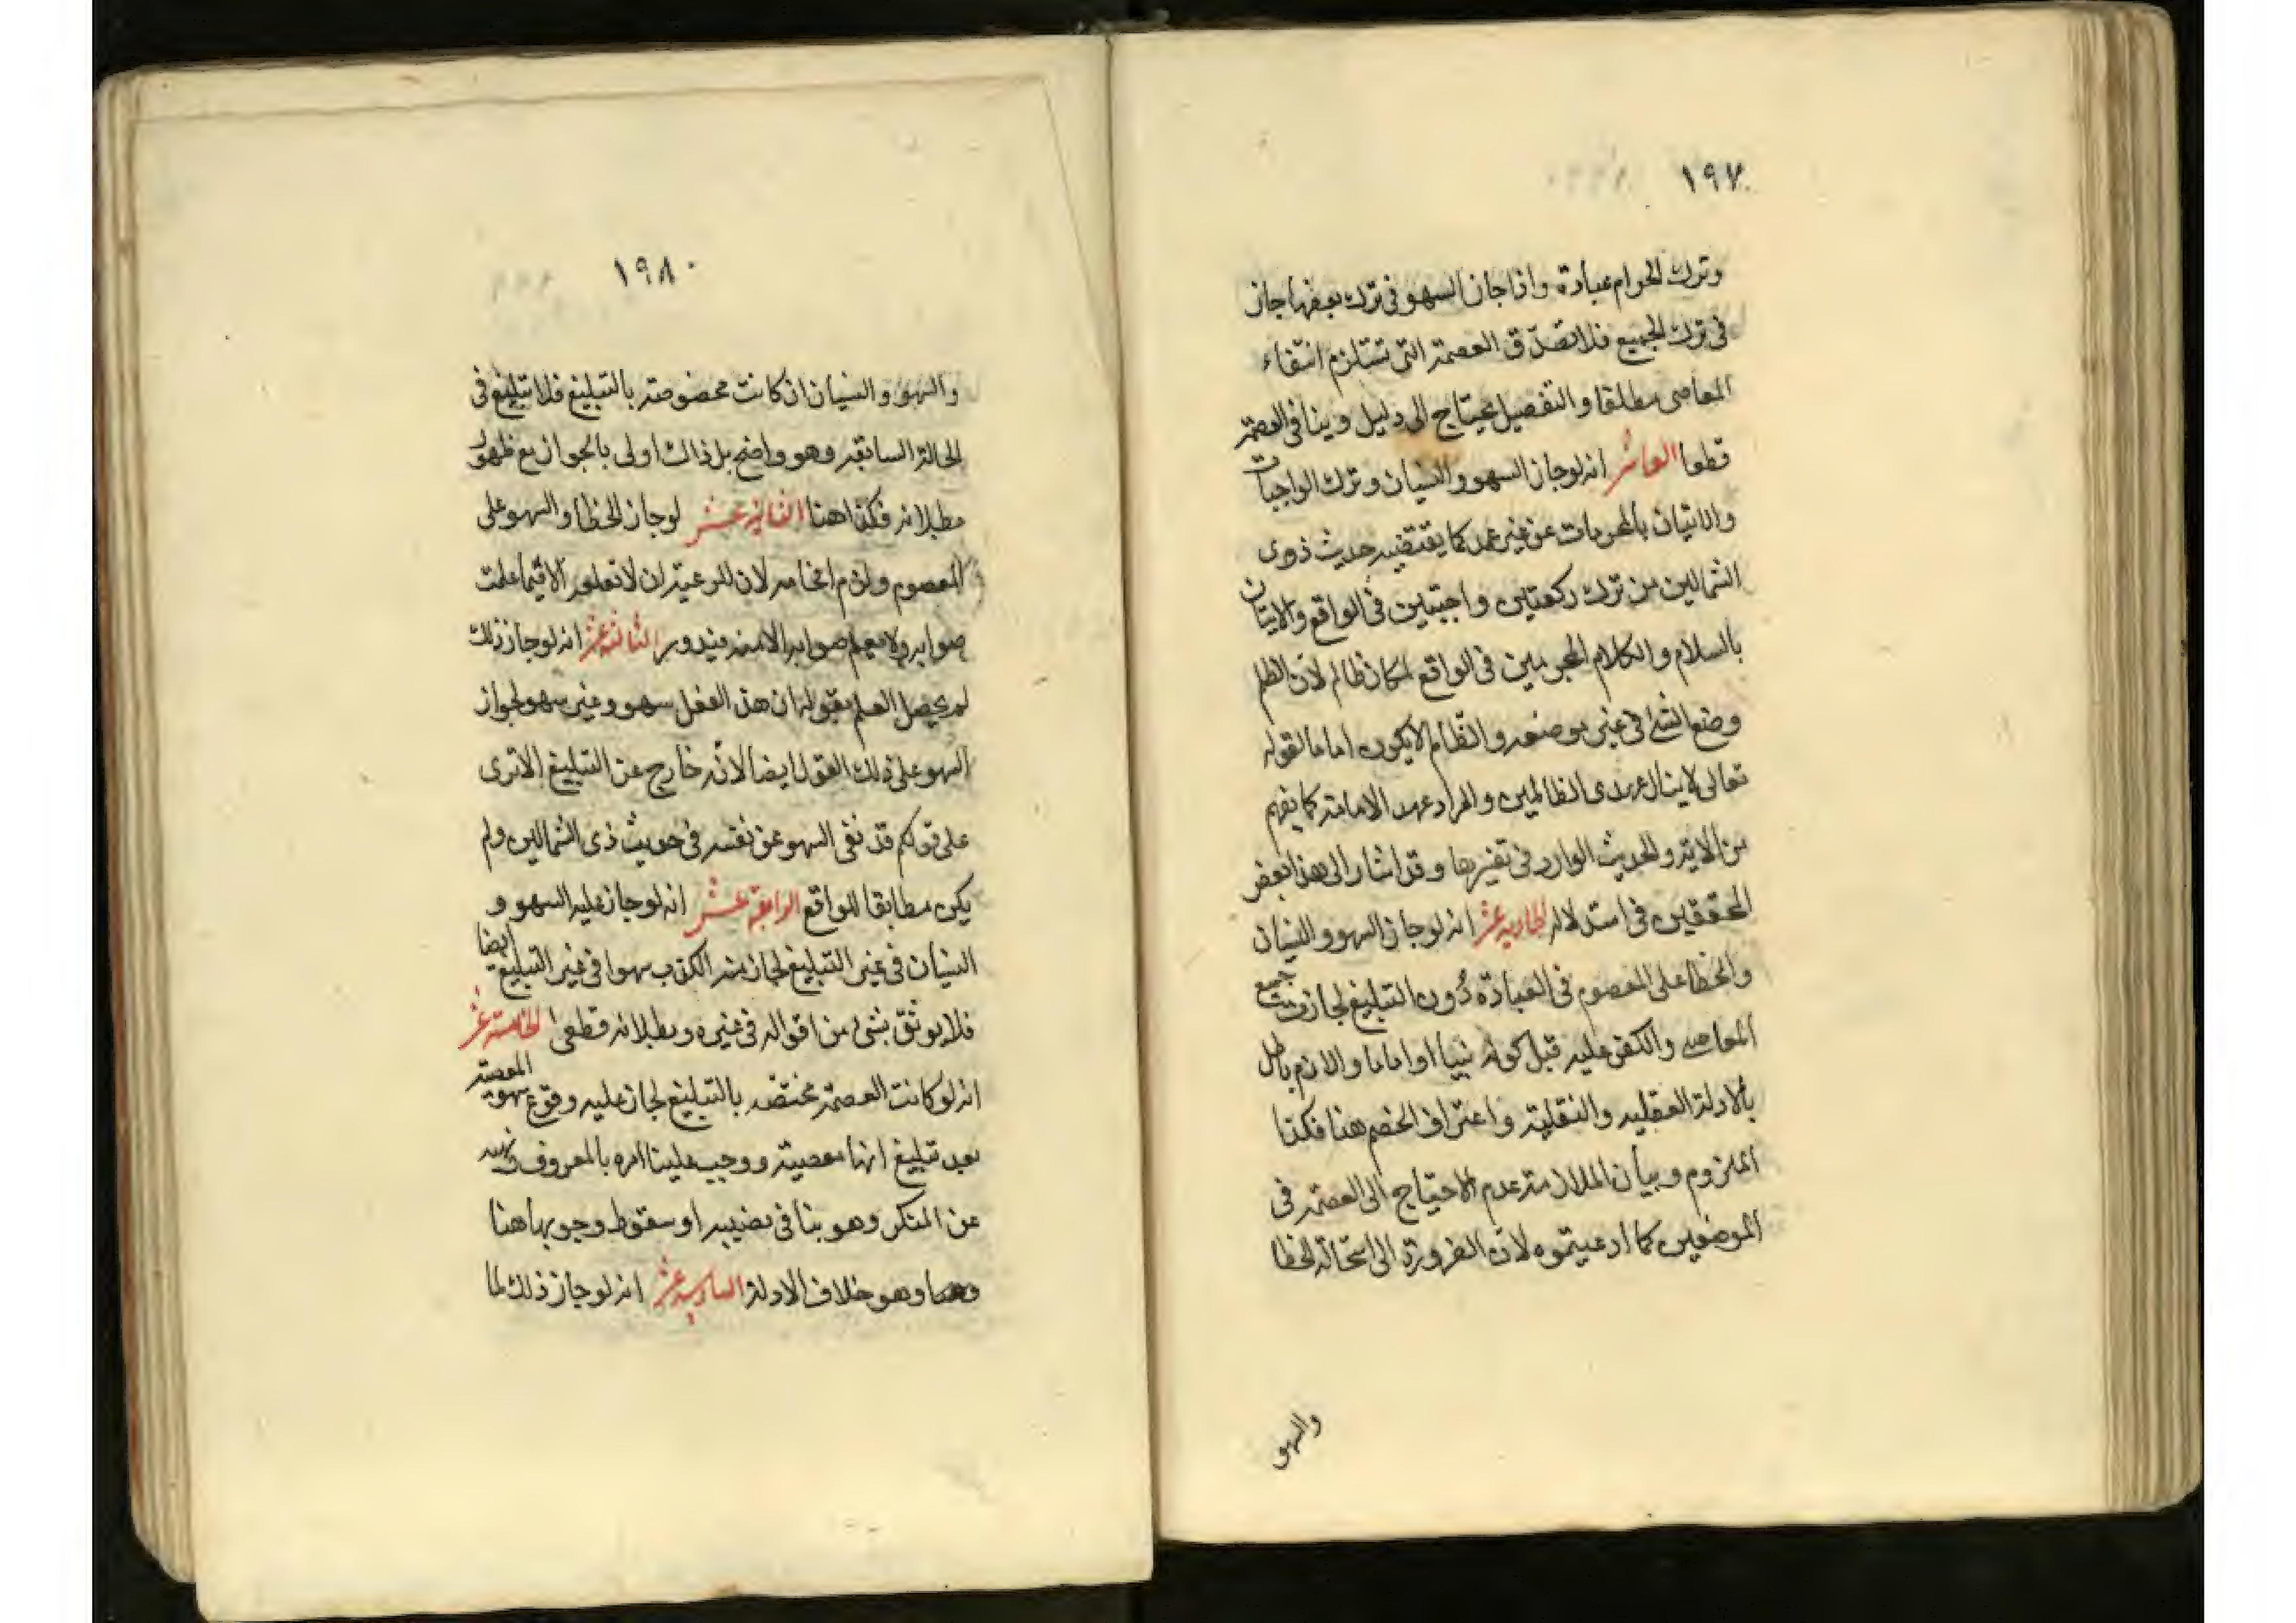 ١٩٧
وترك الحرام عبادة واذا جاز السهو فى ترك بعضها جاز
فى ترك الجميع فلا تصدق العصمة التى تستلزم انتفاء
المعاصى مطلقا والتفصيل يحتاج الى دليل وينافى العصمة
قطعا العاشر انه لو جاز السهو والنسيان وترك الواجبات
والاتيان بالمحرمات عن غير عمد كما يقتضيه حديث ذوى
الشمالين من ترك ركعتين واجبتين فى الواقع والاتيان
بالسلام والكلام المحرمين فى الواقع لكان ظالم لان الظلم
وضع الشئ فى غير موضعه والظالم لا يكون اماما لقوله
تعالى لا ينال عهدى الظالمين والمراد عهد الامامة كما يفهم
من الاية والحديث الوارد فى تفسيرها وقد اشار الى هذا بعض
المحققين فى استدلاله الحادية عشر انه لو جاز السهو والنسيان
والخطا على المعصوم فى العبادة دون التبليغ لجازت جميع
المعاصى والكفر عليه قبل كونه نبيا او اماما واللازم باطل
بالادلة العقلية والنقلية واعتراف الخصم هنا فكذا
الملزوم وبيان الملازمة عدم الاحتياج الى العصمة فى
الموضعين كما ادعيتموه لان الضرورة الى استحالة الخطا
والسهو
١٩٨
والسهو والنسيان ان كانت مخصوصة بالتبليغ فلا تبليغ فى
الحالة السابقة وهو واضح بل ذاك اولى بالجواز مع ظهور
بطلانه فكذا هنا الثانية عشر لو جاز الخطا والسهو على
المعصوم ولزم افحامه لان للرعية ان لا تتبعه الا فيما علمت
صوابه ولا يعلم صوابه الا منه فيدور الثالثة عشر انه لو جاز ذلك
لم يحصل العلم بقوله ان هذا الفعل سهو وغير سهو لجواز
السهو على ذلك القول ايضا لانه خارج عن التبليغ الا ترى
على قولكم قد نفى السهو عن نفسه فى حديث ذى الشمالين ولم
يكن مطابقا للواقع الرابعة عشر انه لو جاز عليه السهو و
النسيان فى غير التبليغ لجاز منه الكذب سهوا فى غير التبليغ ايضا
فلا يوثق بشئ من اقواله فى غيره وبطلانه قطعى الخامسة عشر
انه لو كانت العصمة مختصة بالتبليغ لجاز عليه وقوع المعصية سهوا
بعد تبليغ انها معصية ووجب علينا امره بالمعروف ونهيه
عن المنكر وهو ينافى نصبه او سقوط وجوبها هنا
وهو خلاف الادلة السادسة عشر انه لو جاز ذلك لما